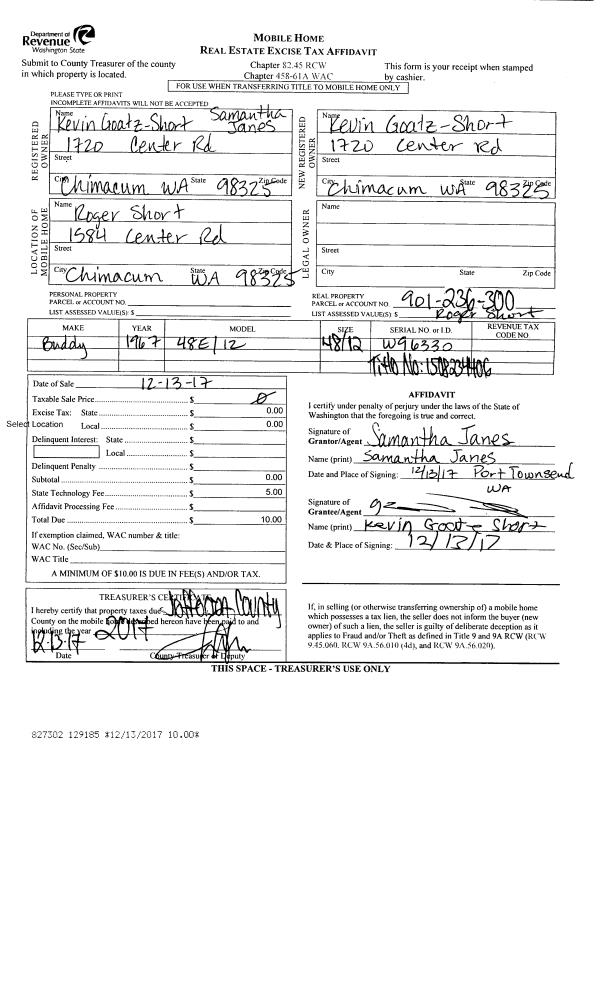 Department of
Revenue
Washington State
MOBILE HOME
REAL ESTATE EXCISE TAX AFFIDAVIT
Submit to County Treasurer of the county
in which property is located.
Chapter 82.45 RCW
Chapter 458-61A WAC
This form is your receipt when stamped
by cashier.
FOR USE WHEN TRANSFERRING TITLE TO MOBILE HOME ONLY
PLEASE TYPE OR PRINT
INCOMPLETE AFFIDAVITS WILL NOT BE ACCEPTED
REGISTERED OWNER
Name Kevin Goatz-Short Samantha Janes
1720 Center Rd
Street
City Chimacum WA State 98325 Zip Code
NEW REGISTERED OWNER
Name Kevin Goatz-Short
1720 Center Rd
Street
City Chimacum WA State 98325 Zip Code
LOCATION OF MOBILE HOME
Name Roger Short
1584 Center Rd
Street
City Chimacum State WA 98325 Zip Code
LEGAL OWNER
Name
Street
City State Zip Code
PERSONAL PROPERTY
PARCEL or ACCOUNT NO.
LIST ASSESSED VALUE(S): $
REAL PROPERTY
PARCEL or ACCOUNT NO. 901-236-300
LIST ASSESSED VALUE(S): $ Roger Short
MAKE YEAR MODEL SIZE SERIAL NO. or I.D. REVENUE TAX CODE NO.
Buddy 1967 48E/12 48/12 W96330
Date of Sale 12-13-17
Taxable Sale Price $ 0
Excise Tax: State $ 0.00
Select Location Local $ 0.00
Delinquent Interest: State $
Local $
Delinquent Penalty $
Subtotal $ 0.00
State Technology Fee $ 5.00
Affidavit Processing Fee $
Total Due $ 10.00
If exemption claimed, WAC number & title:
WAC No. (Sec/Sub)
WAC Title
A MINIMUM OF $10.00 IS DUE IN FEE(S) AND/OR TAX.
AFFIDAVIT
I certify under penalty of perjury under the laws of the State of
Washington that the foregoing is true and correct.
Signature of
Grantor/Agent Samantha Janes
Name (print) Samantha Janes
Date and Place of Signing: 12/13/17 Port Townsend
WA
Signature of
Grantee/Agent
Name (print) Kevin Goatz Short
Date & Place of Signing: 12/13/17
TREASURER'S CERTIFICATE
I hereby certify that property taxes due Jefferson County
County on the mobile home described hereon have been paid to and
including the year 2017
12-13-17
Date County Treasurer or Deputy
If, in selling (or otherwise transferring ownership of) a mobile home
which possesses a tax lien, the seller does not inform the buyer (new
owner) of such a lien, the seller is guilty of deliberate deception as it
applies to Fraud and/or Theft as defined in Title 9 and 9A RCW (RCW
9.45.060, RCW 9A.56.010 (4d), and RCW 9A.56.020).
THIS SPACE - TREASURER'S USE ONLY
827302 129185 *12/13/2017 10.00*